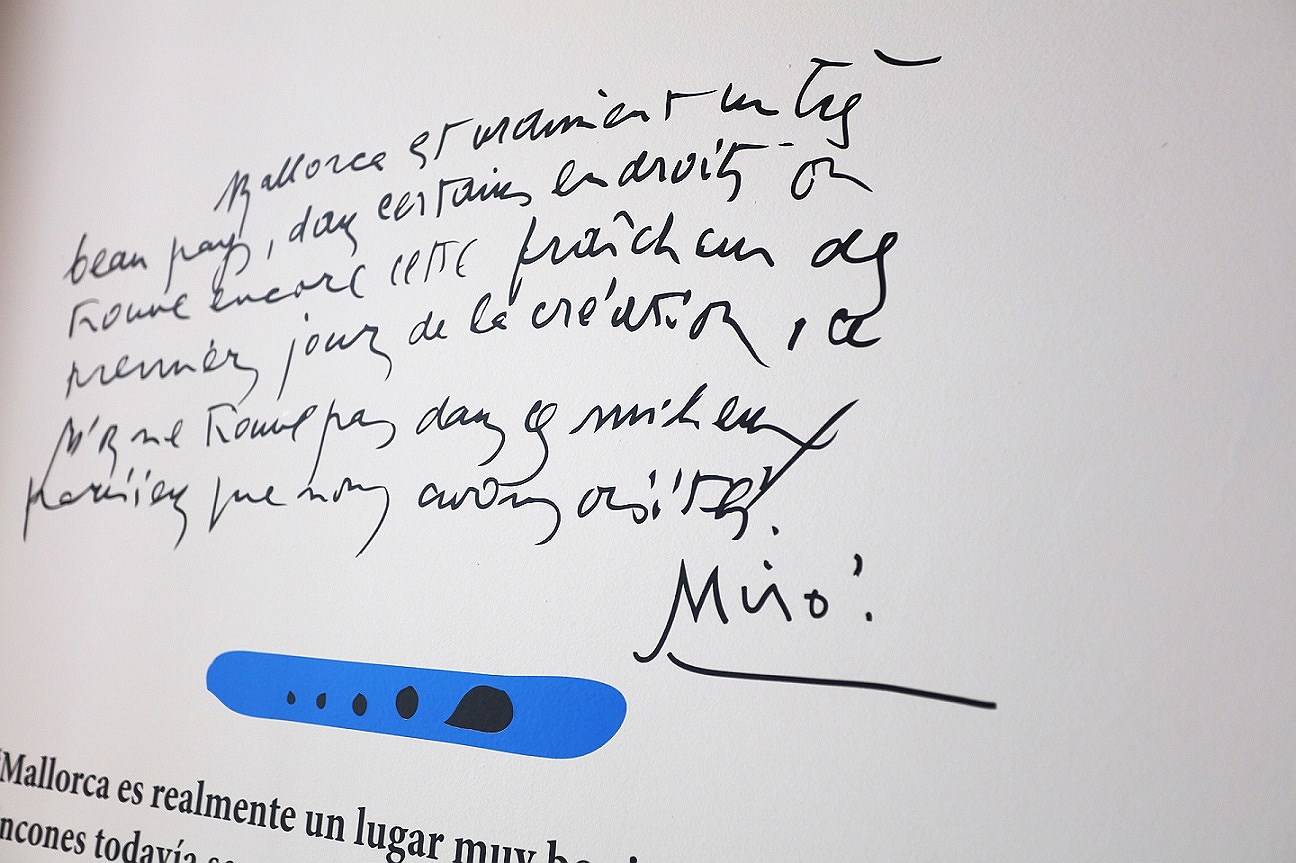 Mallorca est vraiment un très
beau pays, dans certains endroits on
trouve encore cette fraîcheur des
premiers jours de la création, ce
ne trouve pas dans les milieux
parisiens que nous avons visités.
Miró.
Mallorca es realmente un lugar muy
incones todavía